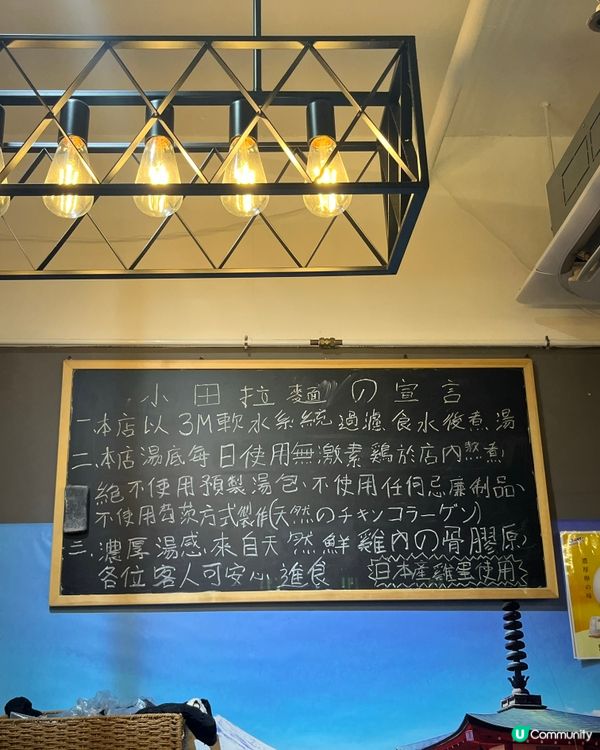 小田拉麵の宣言
一.本店以3M軟水系統過濾食水後煮湯
二、本店湯底每日使用無激素鷄於店內熬煮
絕不使用預製湯包、不使用任何忌廉制品、
不使用芶芡方式製作(天然のチキンコラーゲン)
三.濃厚湯感來自天然鮮雞內の骨膠原
各位客人可安心進食
日本産雞蛋使用
U Community